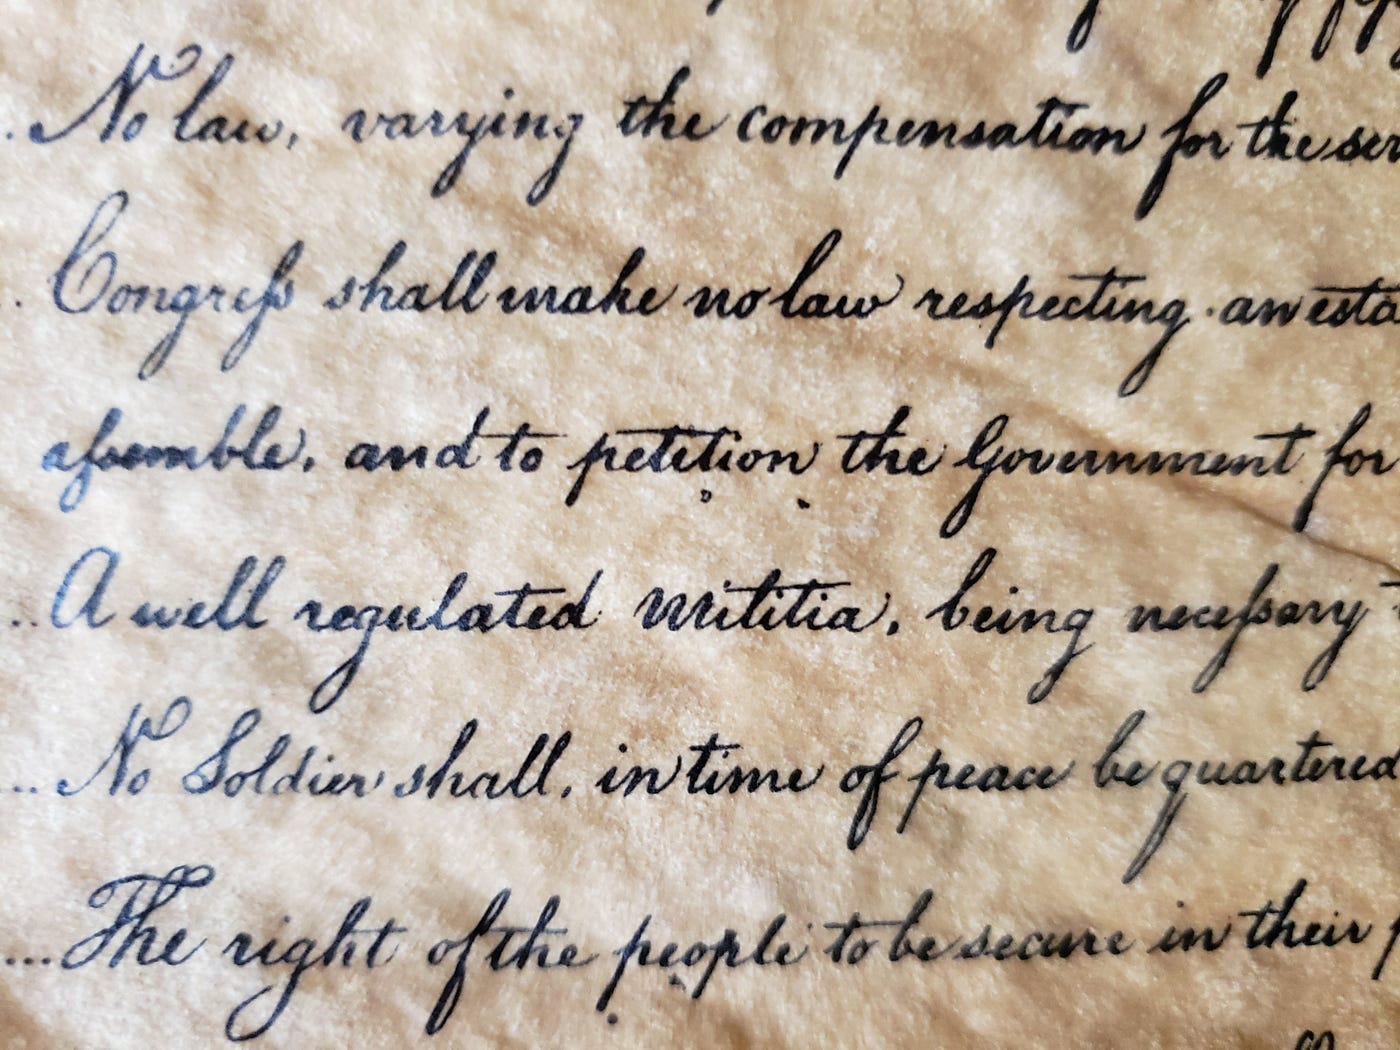 No law, varying the compensation for the ser
Congreſs shall make no law respecting an esta
aſsemble, and to petition the Government for
A well regulated Militia, being neceſsary
No Soldier shall, in time of peace be quartered
The right of the people to be secure in their p